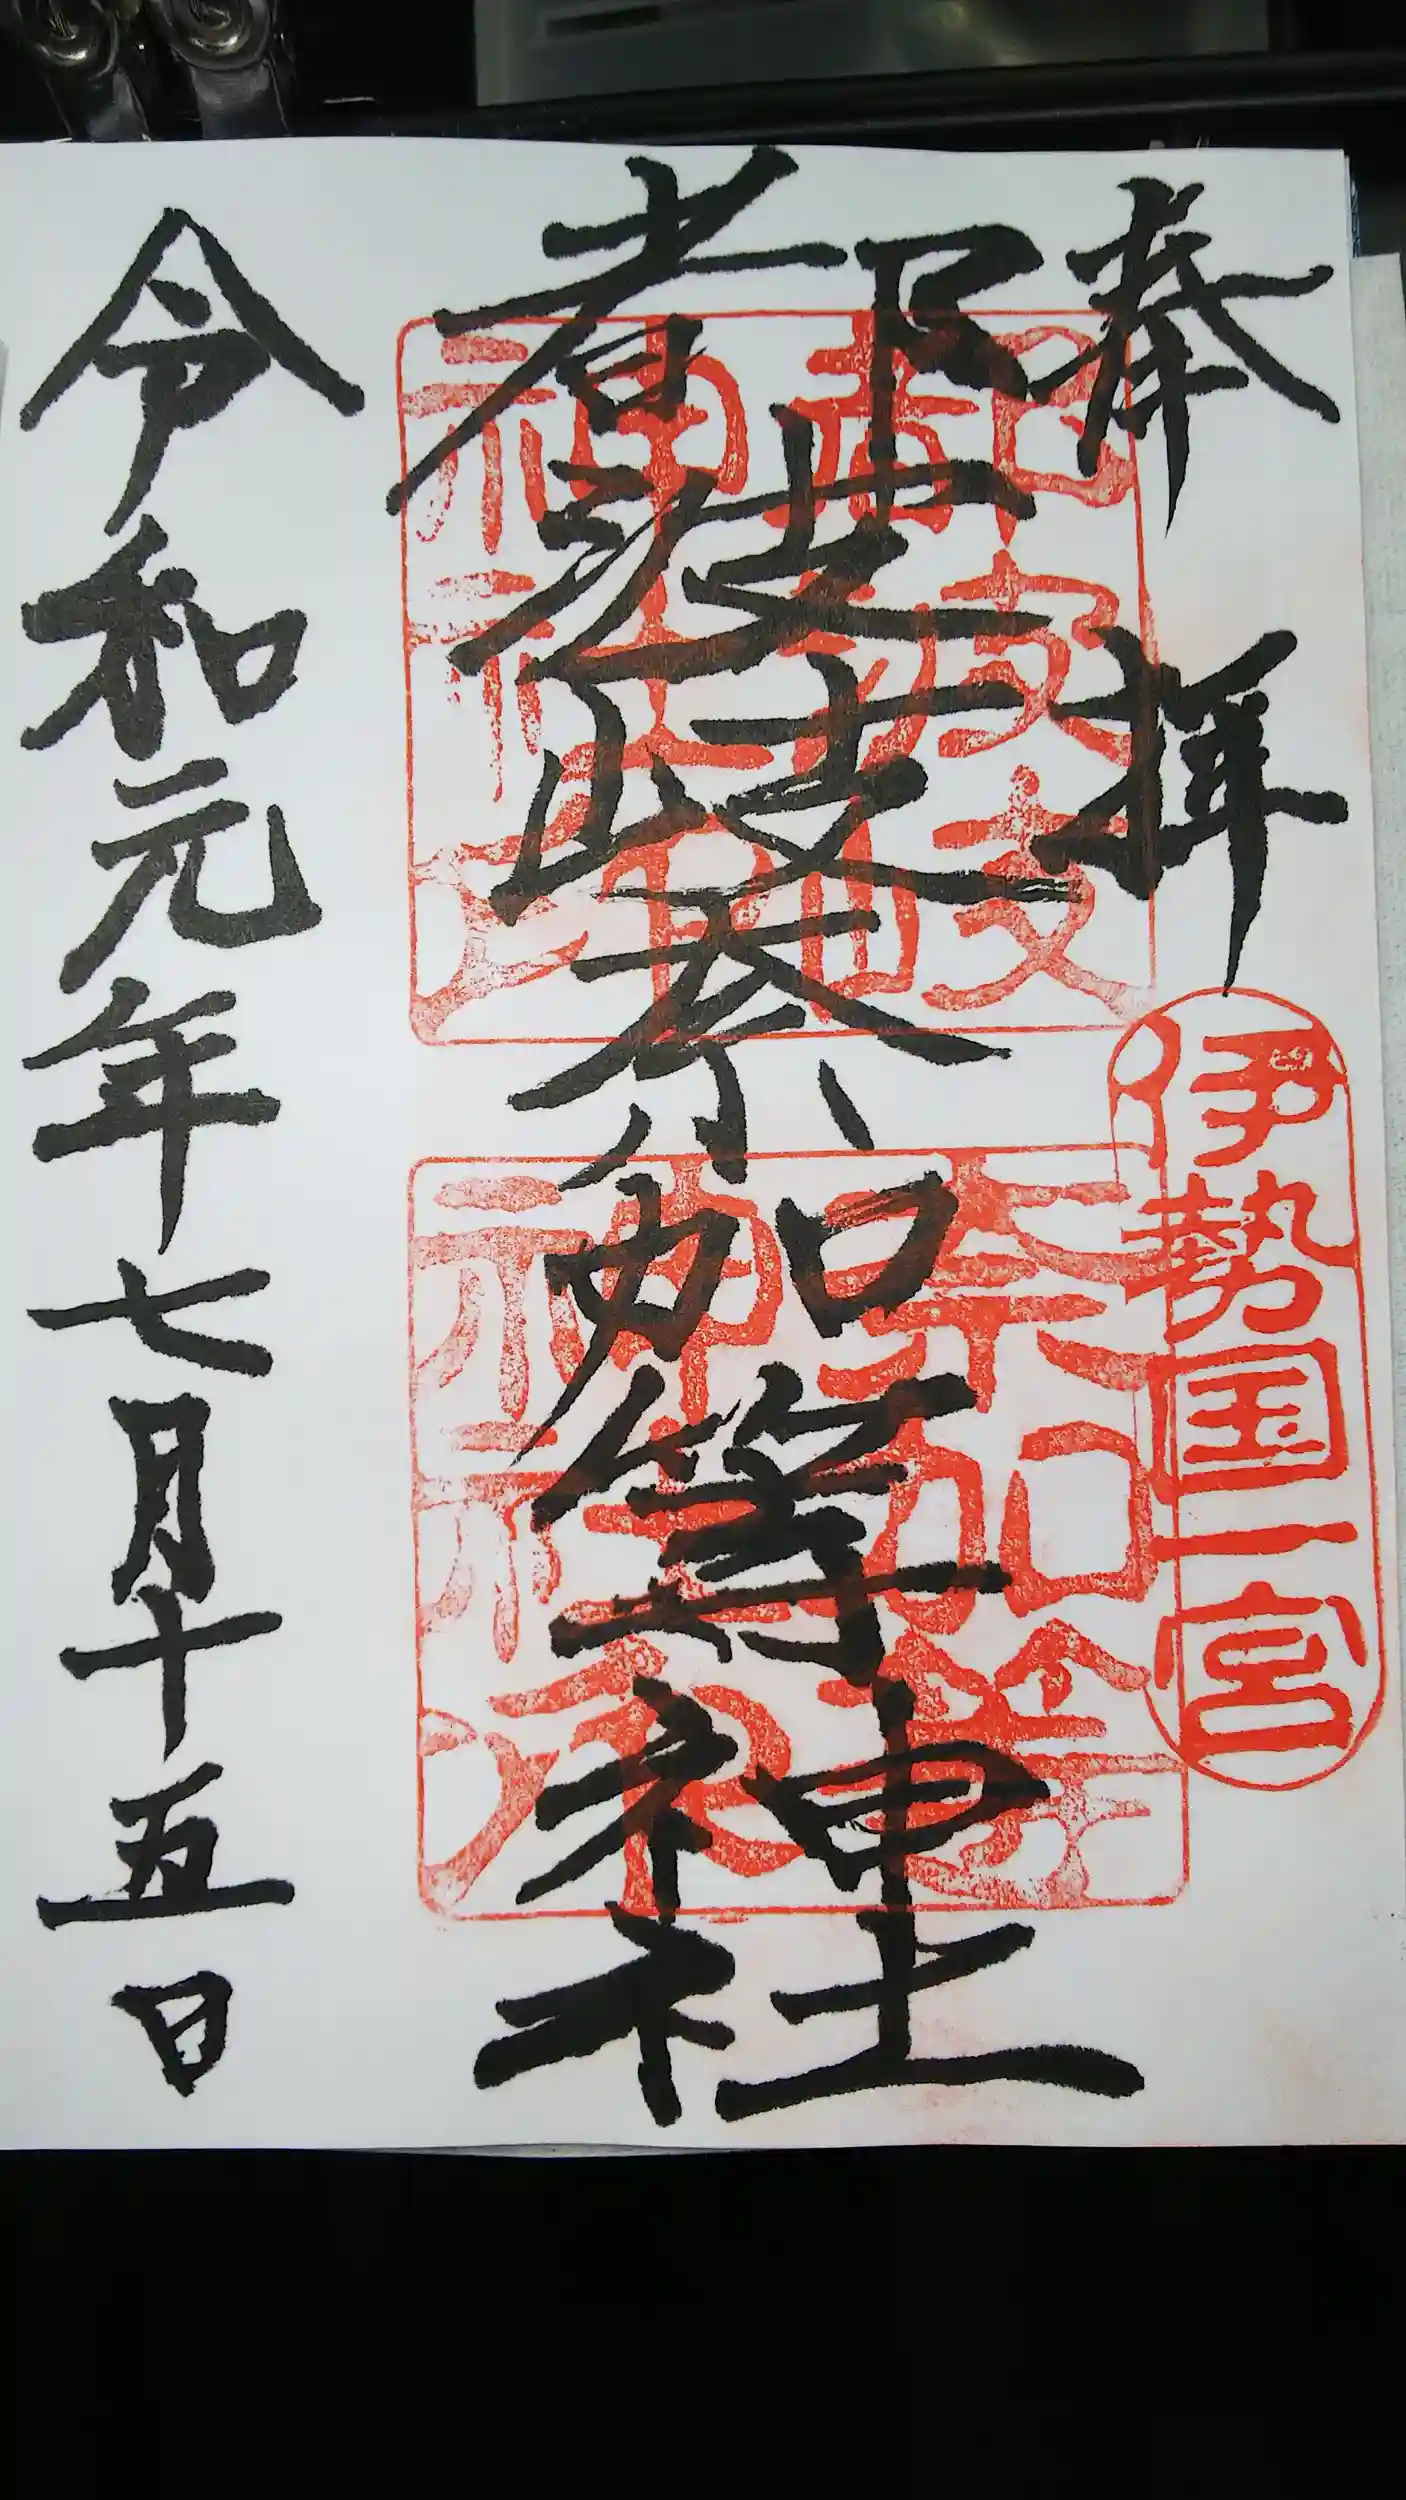 奉拝
伊勢国一宮
都波岐奈加等神社
都波岐
神社印
奈加等
神社印
令和元年七月十五日